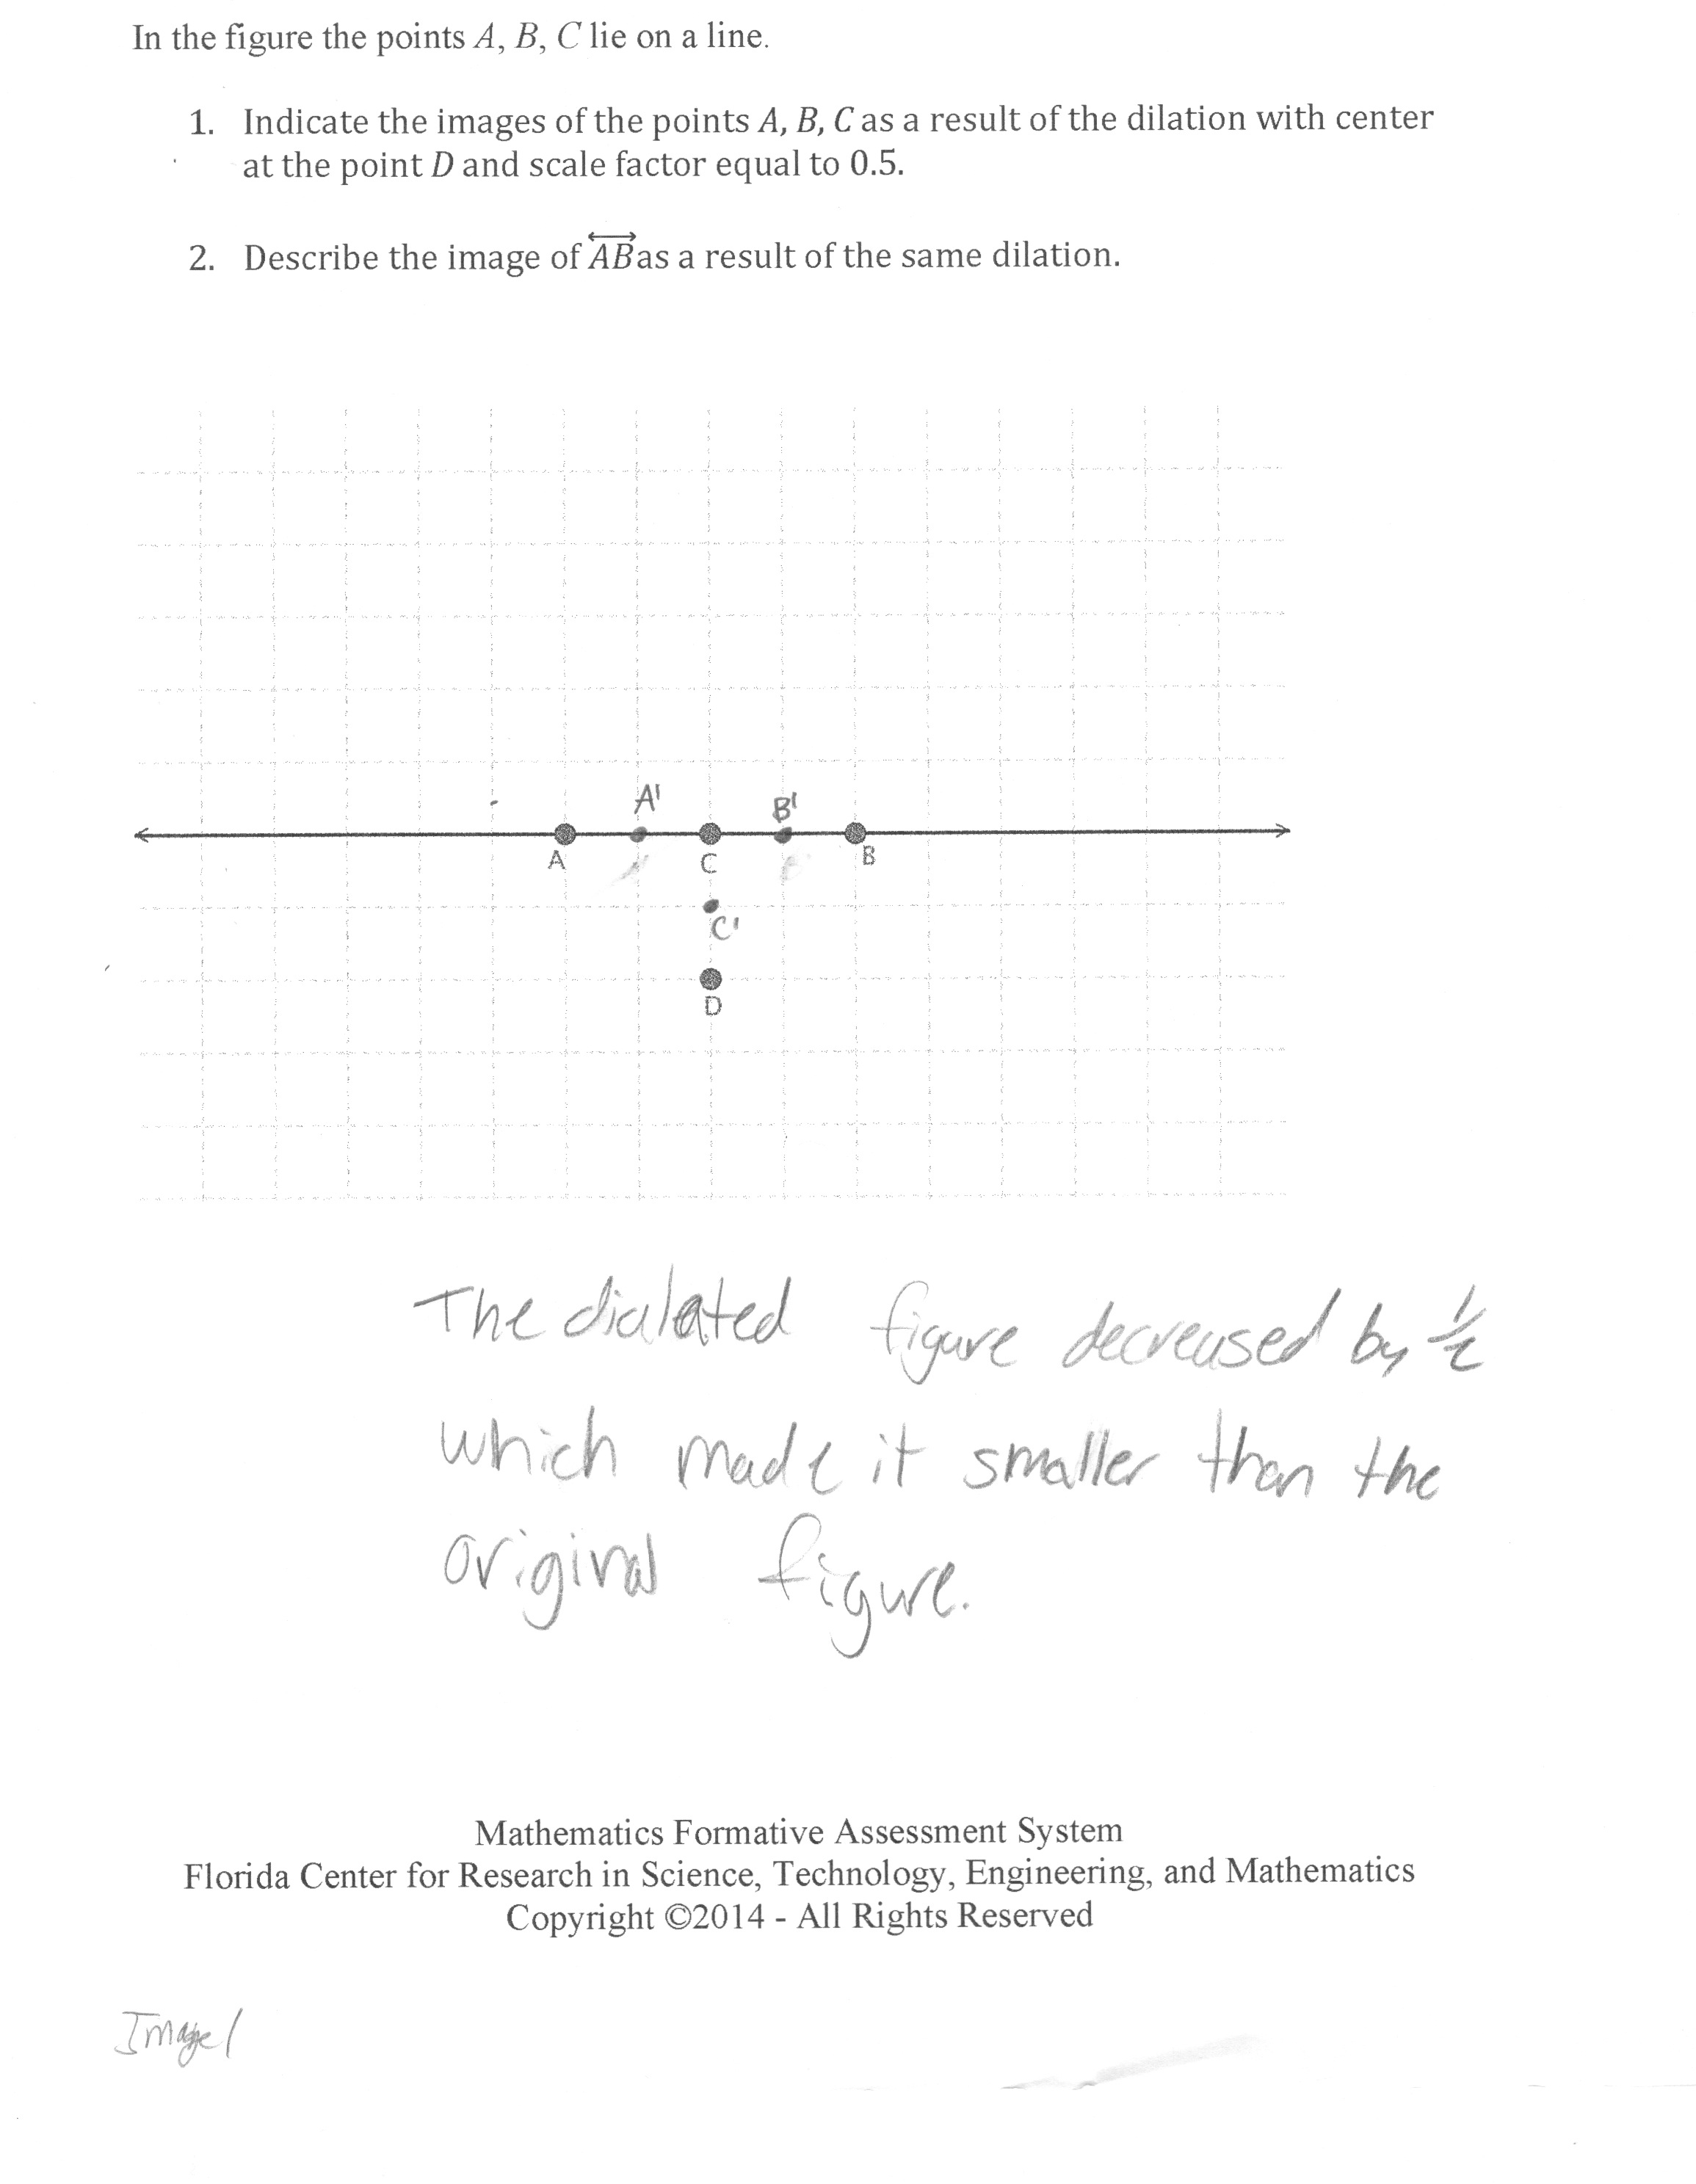 In the figure the points A, B, C lie on a line.
1. Indicate the images of the points A, B, C as a result of the dilation with center
at the point D and scale factor equal to 0.5.
2. Describe the image of AB as a result of the same dilation.
A' B'
A C B
C'
D
The dialated figure decreased by 1/2
which made it smaller than the
original figure.
Mathematics Formative Assessment System
Florida Center for Research in Science, Technology, Engineering, and Mathematics
Copyright ©2014 - All Rights Reserved
Image 1